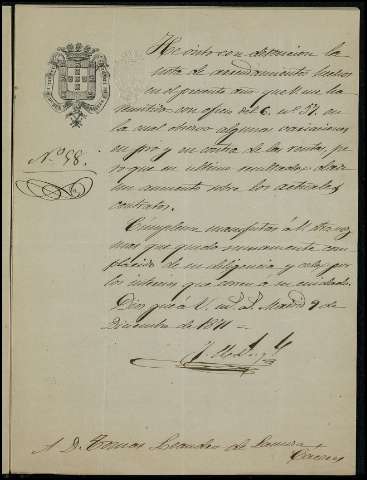 He visto con detencion la
nota de arrendamientos hechos
en el presente año que U. me ha
remitido con oficio del 6. nº 57. en
la cual observo algunas variaciones
en pró y en contra de las rentas, pe
ro que en ultimo resultado
un aumento sobre los actuales
contratos.
Nº 58.
Cúmpleme manifestar á U.
mos que quedo sumamente com
placido de su diligencia y celo por
los intereses que corren a su cuidado.
Dios gue á U. ms. as. Madrid 9 de
Diciembre de 1871 =
A D. Tomas Leandro de
Cáceres